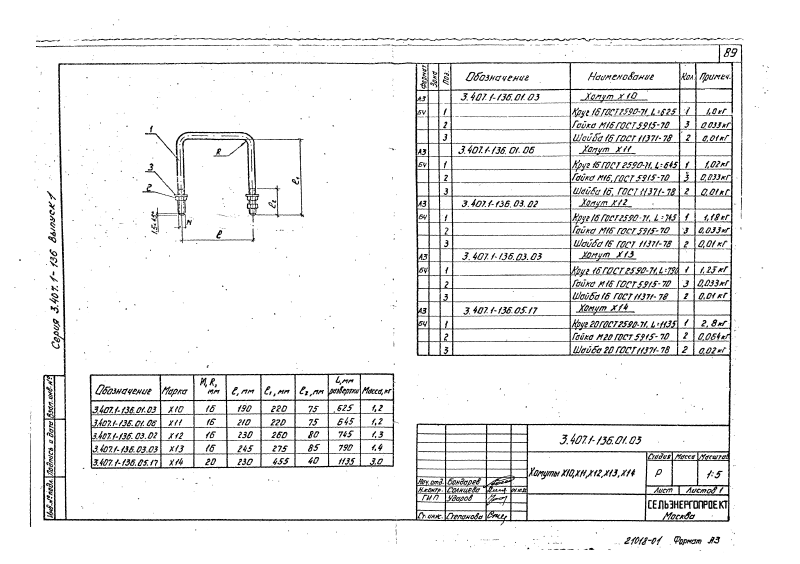 89
Формат Зона Поз. Обозначение Наименование Кол. Примеч.
А3 3.407.1-136.01.03 Хомут Х10
БЧ 1 Круг 16 ГОСТ 2590-71, L=625 1 1,0 кг
2 Гайка М16 ГОСТ 5915-70 3 0,033 кг
3 Шайба 16 ГОСТ 11371-78 2 0,01 кг
А3 3.407.1-136.01.06 Хомут Х11
БЧ 1 Круг 16 ГОСТ 2590-71, L=645 1 1,02 кг
2 Гайка М16, ГОСТ 5915-70 3 0,033 кг
3 Шайба 16, ГОСТ 11371-78 2 0,01 кг
А3 3.407.1-136.03.02 Хомут Х12
БЧ 1 Круг 16 ГОСТ 2590-71, L=745 1 1,18 кг
2 Гайка М16 ГОСТ 5915-70 3 0,033 кг
3 Шайба 16 ГОСТ 11371-78 2 0,01 кг
А3 3.407.1-136.03.03 Хомут Х13
БЧ 1 Круг 16 ГОСТ 2590-71, L=790 1 1,25 кг
2 Гайка М16 ГОСТ 5915-70 3 0,033 кг
3 Шайба 16 ГОСТ 11371-78 2 0,01 кг
А3 3.407.1-136.05.17 Хомут Х14
БЧ 1 Круг 20 ГОСТ 2590-71, L=1135 1 2,8 кг
2 Гайка М20 ГОСТ 5915-70 2 0,064 кг
3 Шайба 20 ГОСТ 11371-78 2 0,02 кг
1
R
3
2
ℓ₁
ℓ₂
М
ℓ
Серия 3.407.1-136 Выпуск 1
Обозначение Марка М, R, мм ℓ, мм ℓ₁, мм ℓ₂, мм L, мм развертки Масса, кг
3.407.1-136.01.03 Х10 16 190 220 75 625 1,2
3.407.1-136.01.06 Х11 16 210 220 75 645 1,2
3.407.1-136.03.02 Х12 16 230 260 80 745 1,3
3.407.1-136.03.03 Х13 16 245 275 85 790 1,4
3.407.1-136.05.17 Х14 20 230 455 40 1135 3,0
Инв.№ подл. Подпись и дата Взам.инв.№
3.407.1-136.01.03
Хомуты Х10, Х11, Х12, Х13, Х14
Стадия Масса Масштаб
Р 1:5
Лист Листов 1
Нач.отд. Бондарев
Н.контр. Солнцева
ГИП Ударов
Ст.инж. Степанова
СЕЛЬЭНЕРГОПРОЕКТ
Москва
21018-01 Формат А3